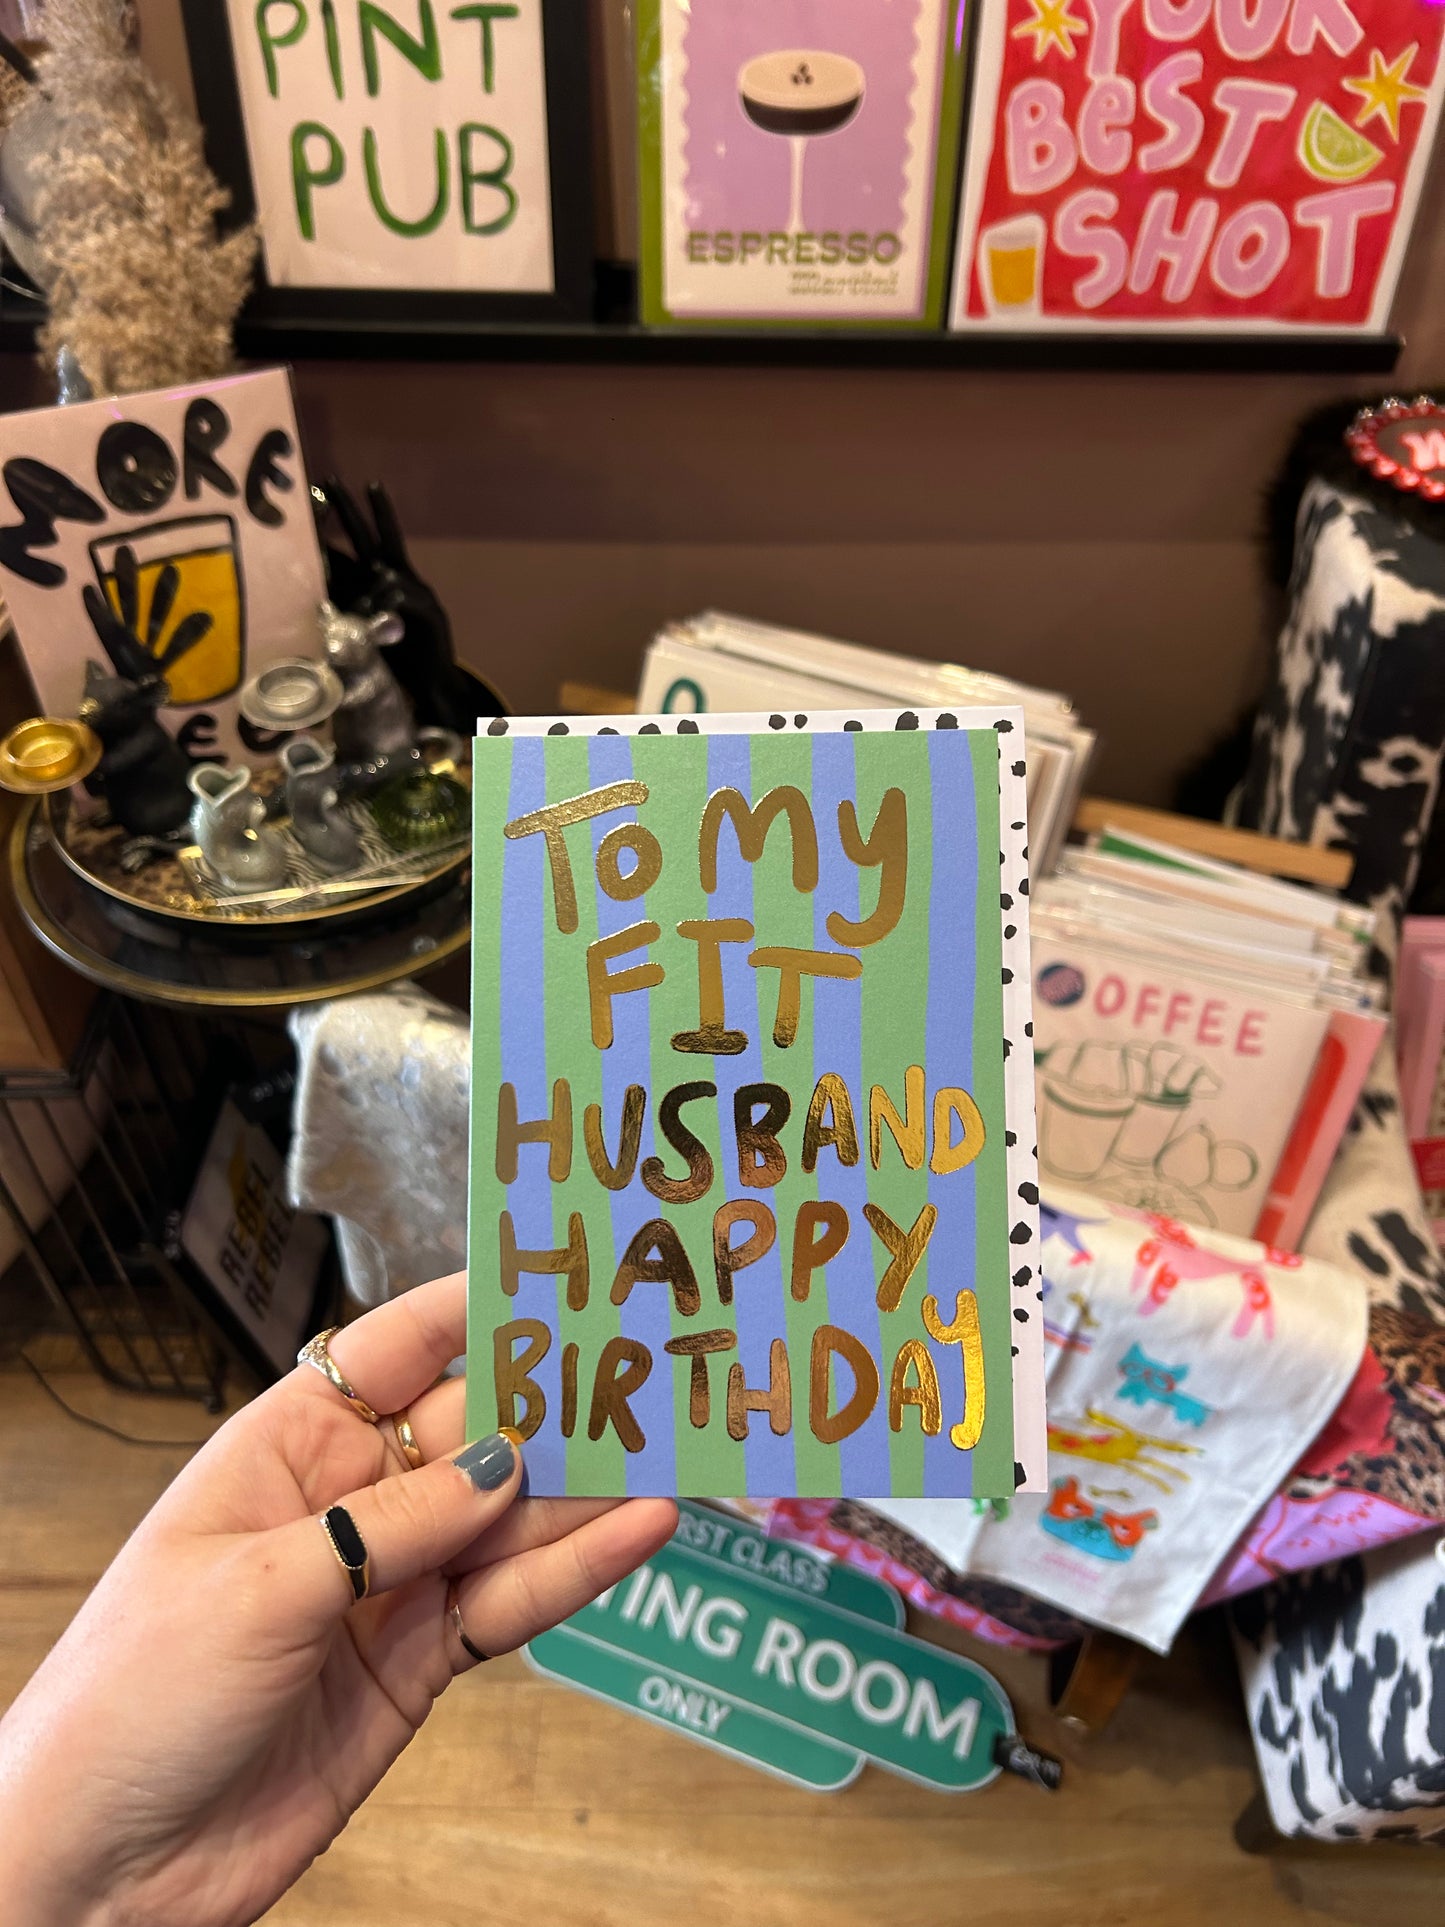 PINT
PUB
ESPRESSO
YOUR
BEST
SHOT
MORE
TO MY
FIT
HUSBAND
HAPPY
BIRTHDAY
COFFEE
REBEL
REBEL
RST CLASS
TING ROOM
ONLY